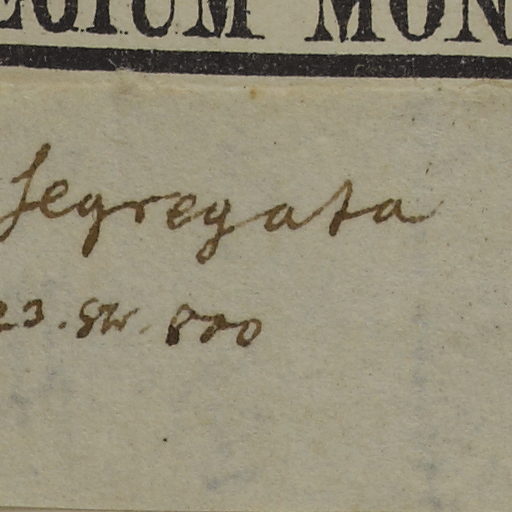 EGIUM MON
segregata
23. SW. 800